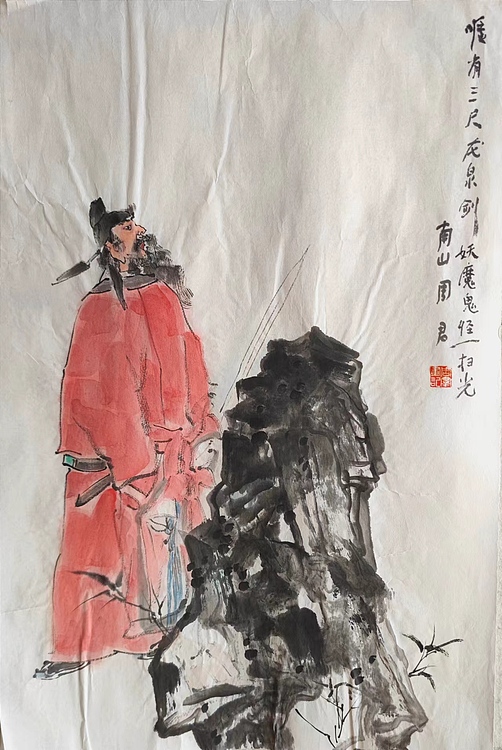 唯有三尺龙泉剑妖魔鬼怪一扫光
南山周君